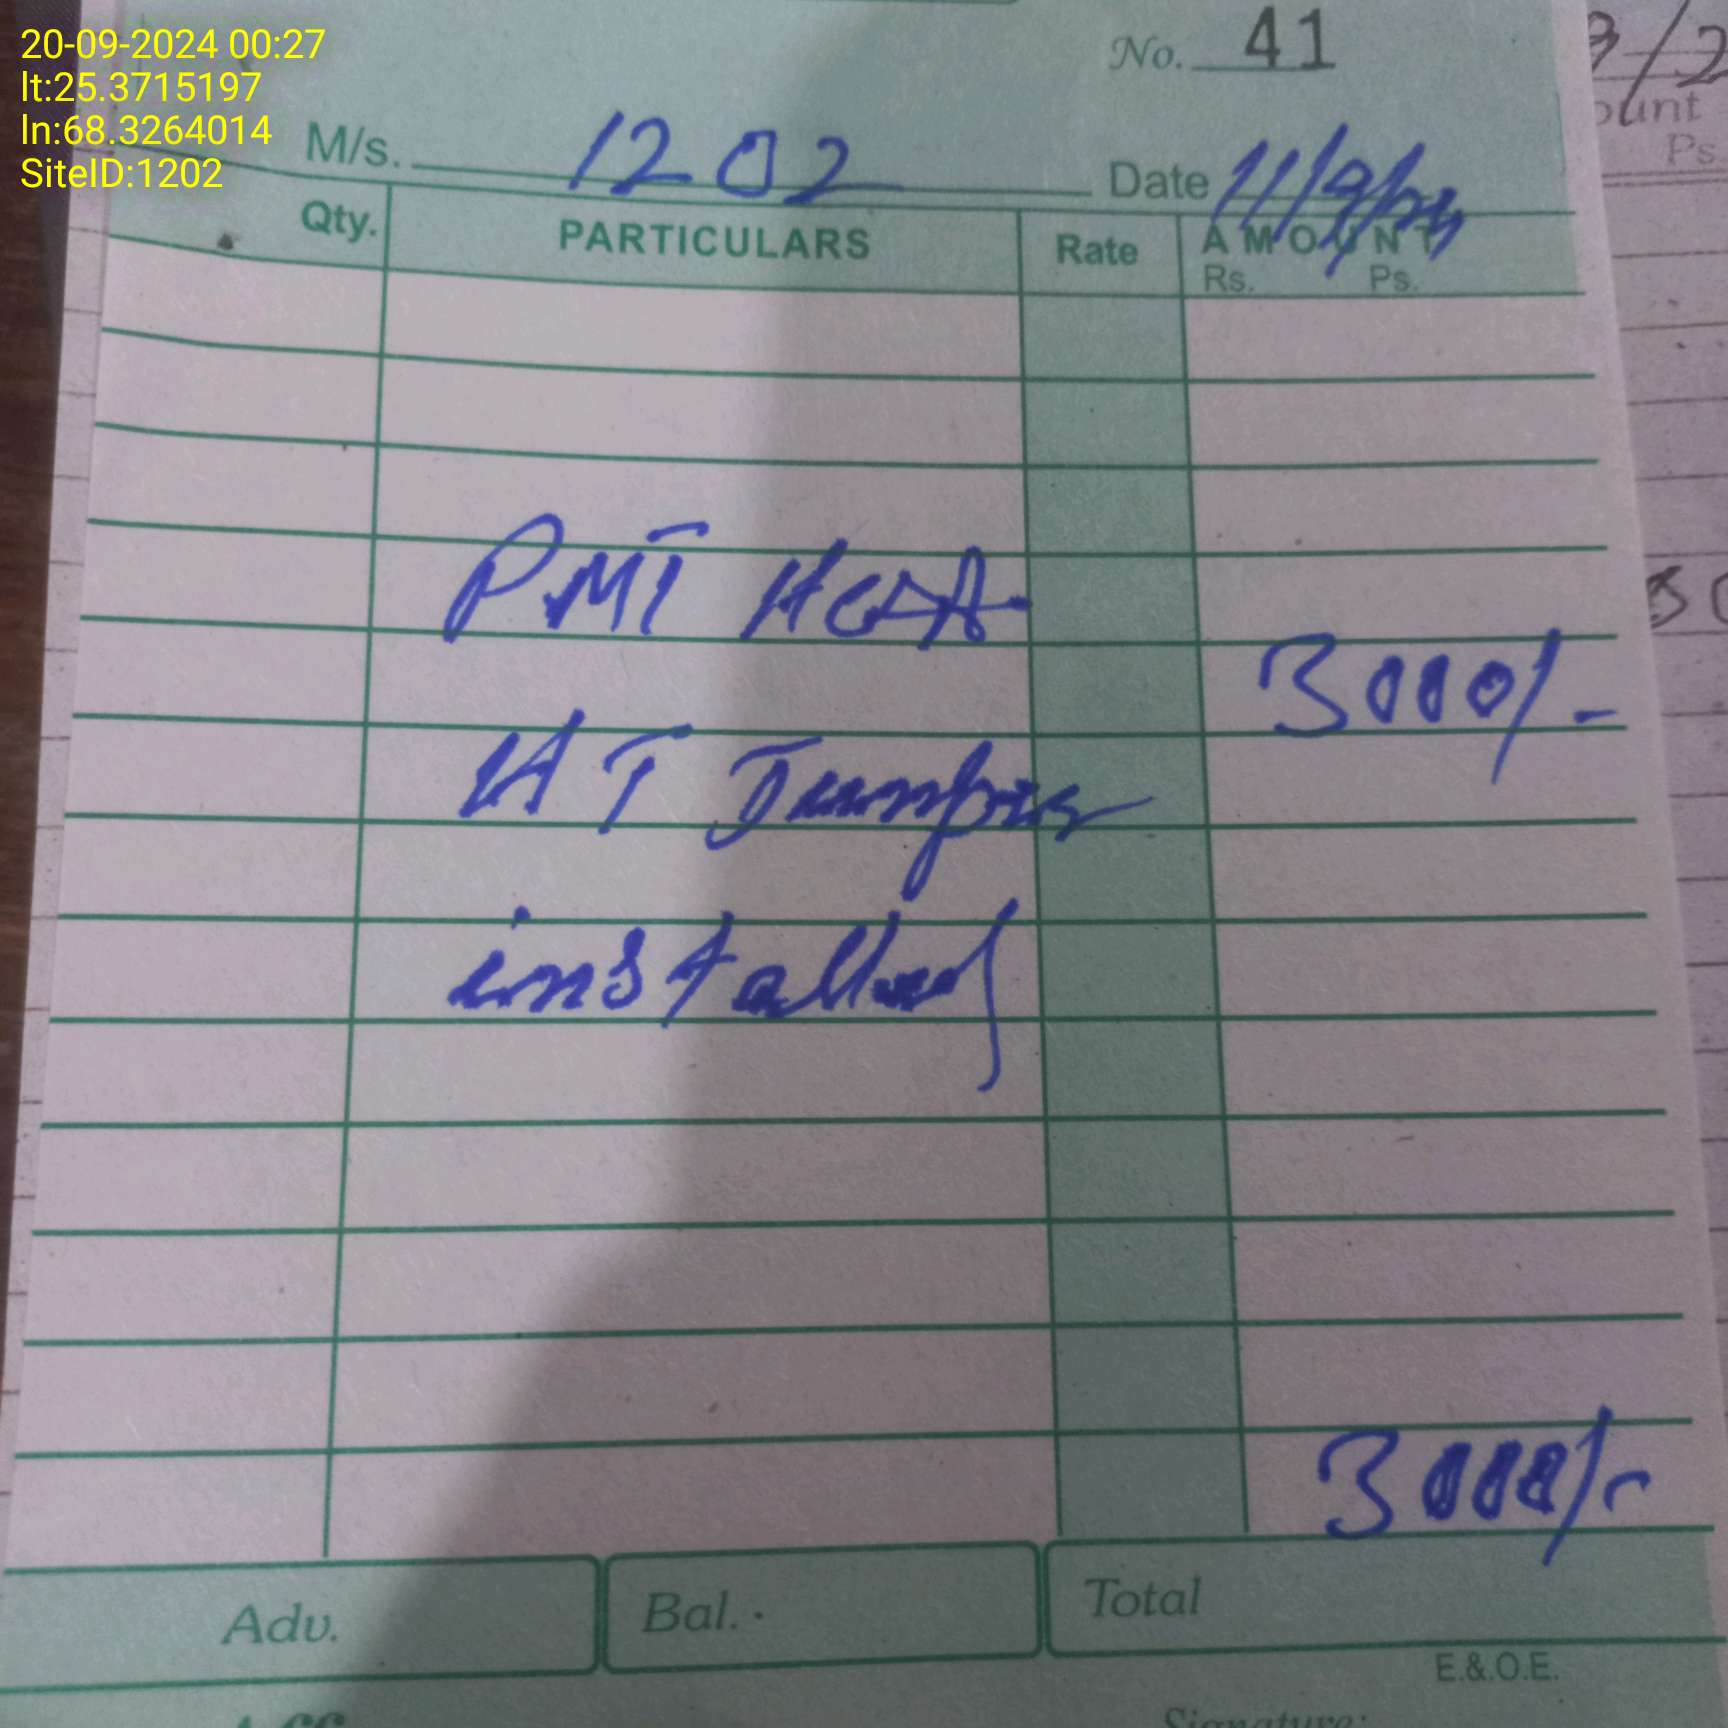 20-09-2024 00:27
lt:25.3715197
ln:68.3264014
SiteID:1202
No. 41
M/s. 1202 Date 11/9/24
Qty. PARTICULARS Rate AMOUNT
Rs. Ps.
PMT
3000/-
HT Jumper
installed
3000/-
Adv. Bal. Total
E.&.O.E.
Signature:
ount
Ps